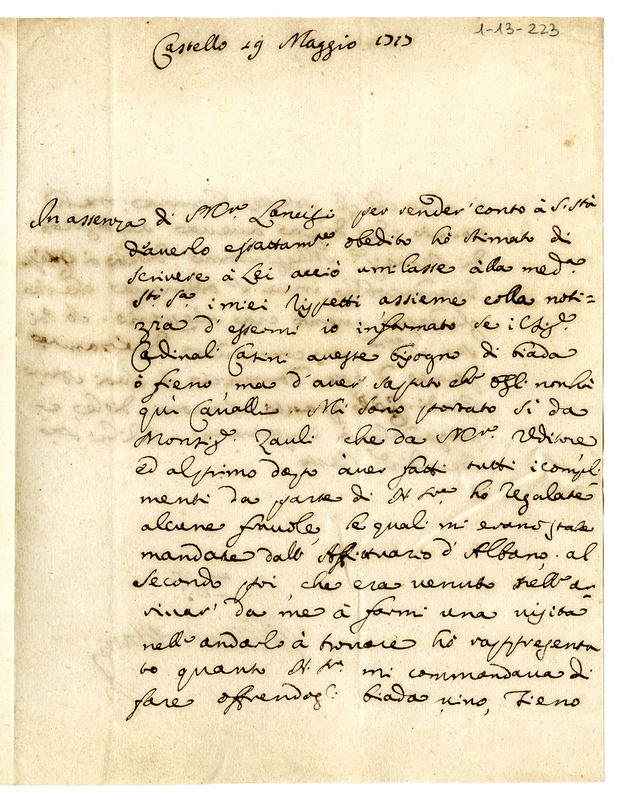 1-13-223
Castello 29 Maggio 1717
In assenza di Mr. Lancisi per render conto à S. Stà
d'averlo esattamte. obedito hò stimato di
scrivere à Lei acciò umiliasse alla meda.
Stà Sa. i miei rispetti assieme colla noti=
zia d'essermi io informato se il Sigr.
Cardinal Casini avesse bisogno di biada
ò fieno ma d'aver saputo che egli non hà
qui Cavalli. Mi sono portato sì da
Monsigr. Zauli che da Mr. Uditore
ed al primo dopo aver fatti tutti i compli
menti da parte di N. Sre. hò regalate
alcune fravole le quali mi erano state
mandate dall'Affittuario d'Albano. al
secondo poi che era venuto nell'a-
rivar' da me à farmi una visita
nell'andarlo à trovare hò rappresenta
to quanto N. Sre. mi commandava di
fare offrendogli biada vino, Fieno